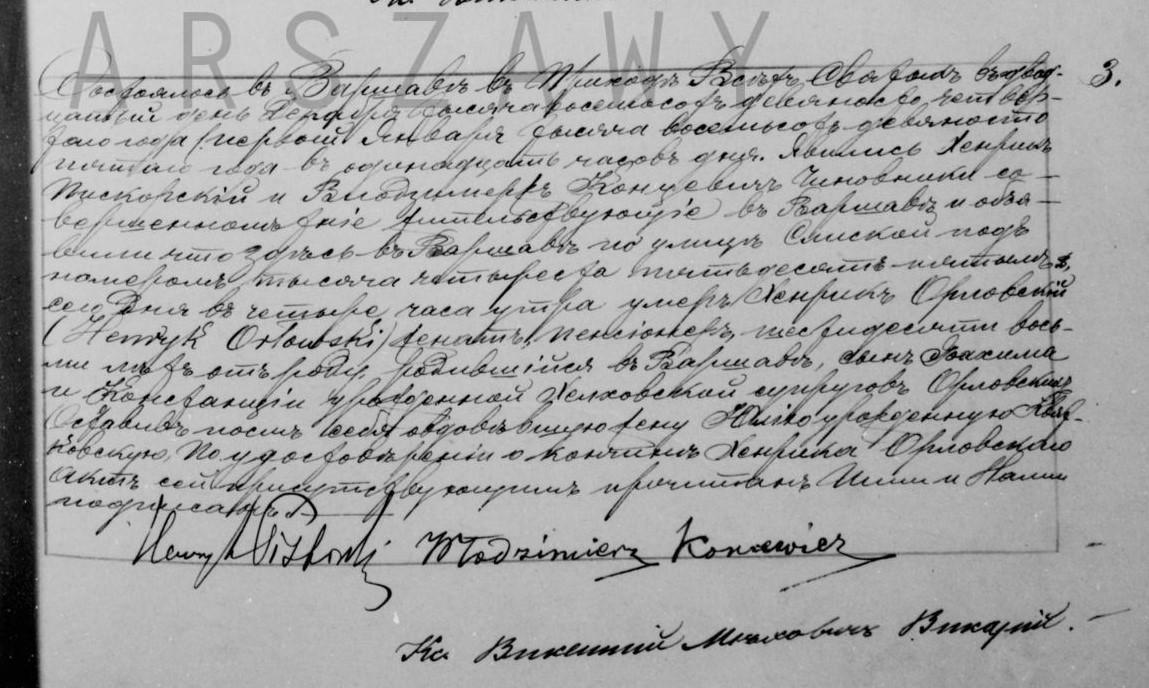 ARSZAWY
3.
Состоялось въ Варшавѣ въ Приходѣ Всѣхъ Святыхъ въ двад-
цатый день Декабря тысяча восемьсотъ девяносто четвер-
таго года /первой Января тысяча восемьсотъ девяносто
пятаго года въ одинадцать часовъ дня. Явились Хенрикъ
Пискорскій и Влодзимержъ Концевичъ Чиновники со-
вершеннолѣтніе жительствующіе въ Варшавѣ и объя-
вили что здѣсь въ Варшавѣ по улицѣ Слиской подъ
номеромъ тысяча четыреста пятьдесятъ пятымъ
сего дня въ четыре часа утра умеръ Хенрикъ Орловскій
(Henryk Orłowski) женатъ, пенсіонеръ, шестидесяти вось-
ми лѣтъ отъ роду, родившійся въ Варшавѣ, сынъ Іоахима
и Констанціи урожденной супруговъ Орловскихъ
Оставивъ послѣ себя овдовѣвшую жену Юлію урожденную
ковскую. По удостовѣреніи о кончинѣ Хенрика Орловскаго
актъ сей присутствующимъ прочитанъ Ими и Нами
подписанъ.
Henryk Piskorski Włodzimierz Koncewicz
Кс Викентій Викарій.